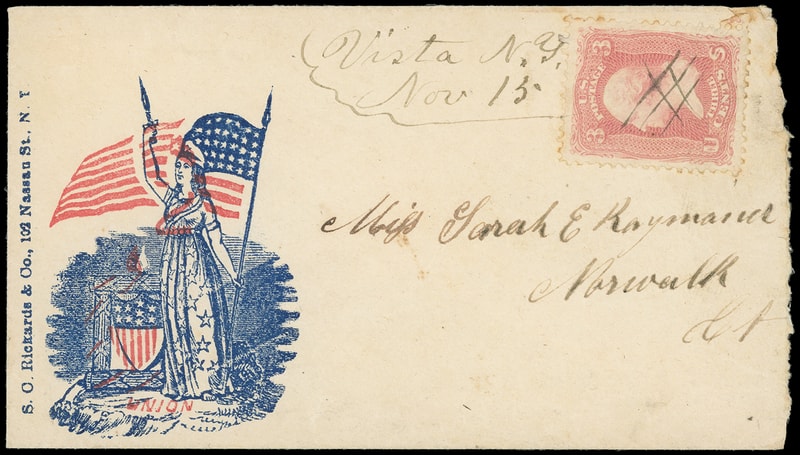 Vista N.Y.
Nov 15
U.S. POSTAGE
3 CENTS 3
Miss Sarah E Raymond
Norwalk
Ct
S. C. Rickards & Co., 102 Nassau St., N. Y
UNION